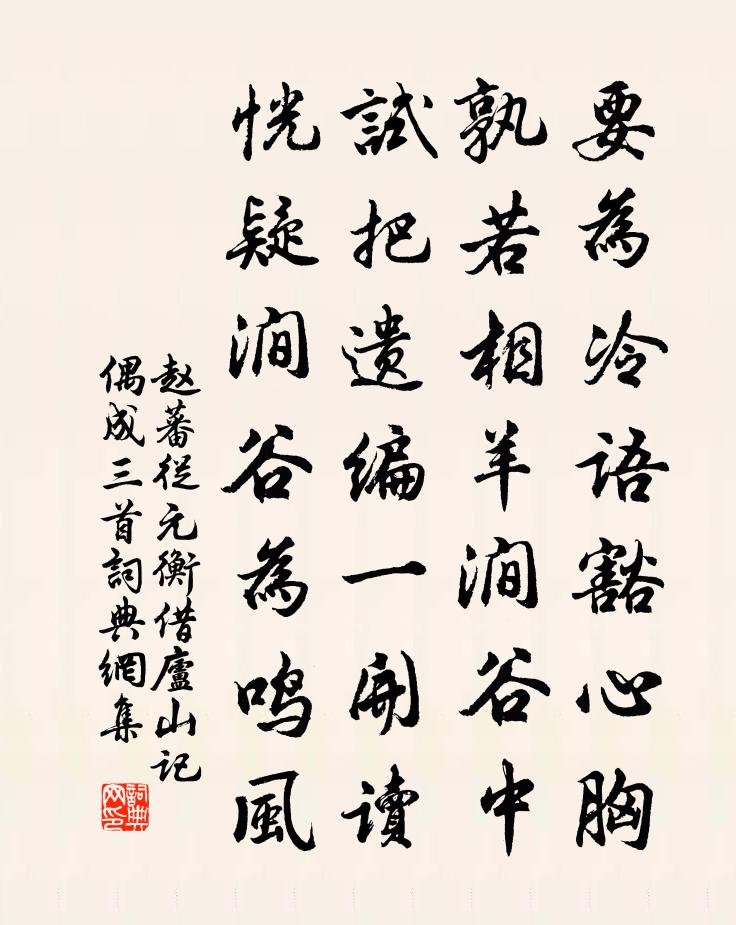 要為冷語豁心胸
孰若相羊澗谷中
試把遗编一開讀
恍疑澗谷為鸣風
赵蕃從元衡借廬山記
偶成三首詞典網集
詞典網印